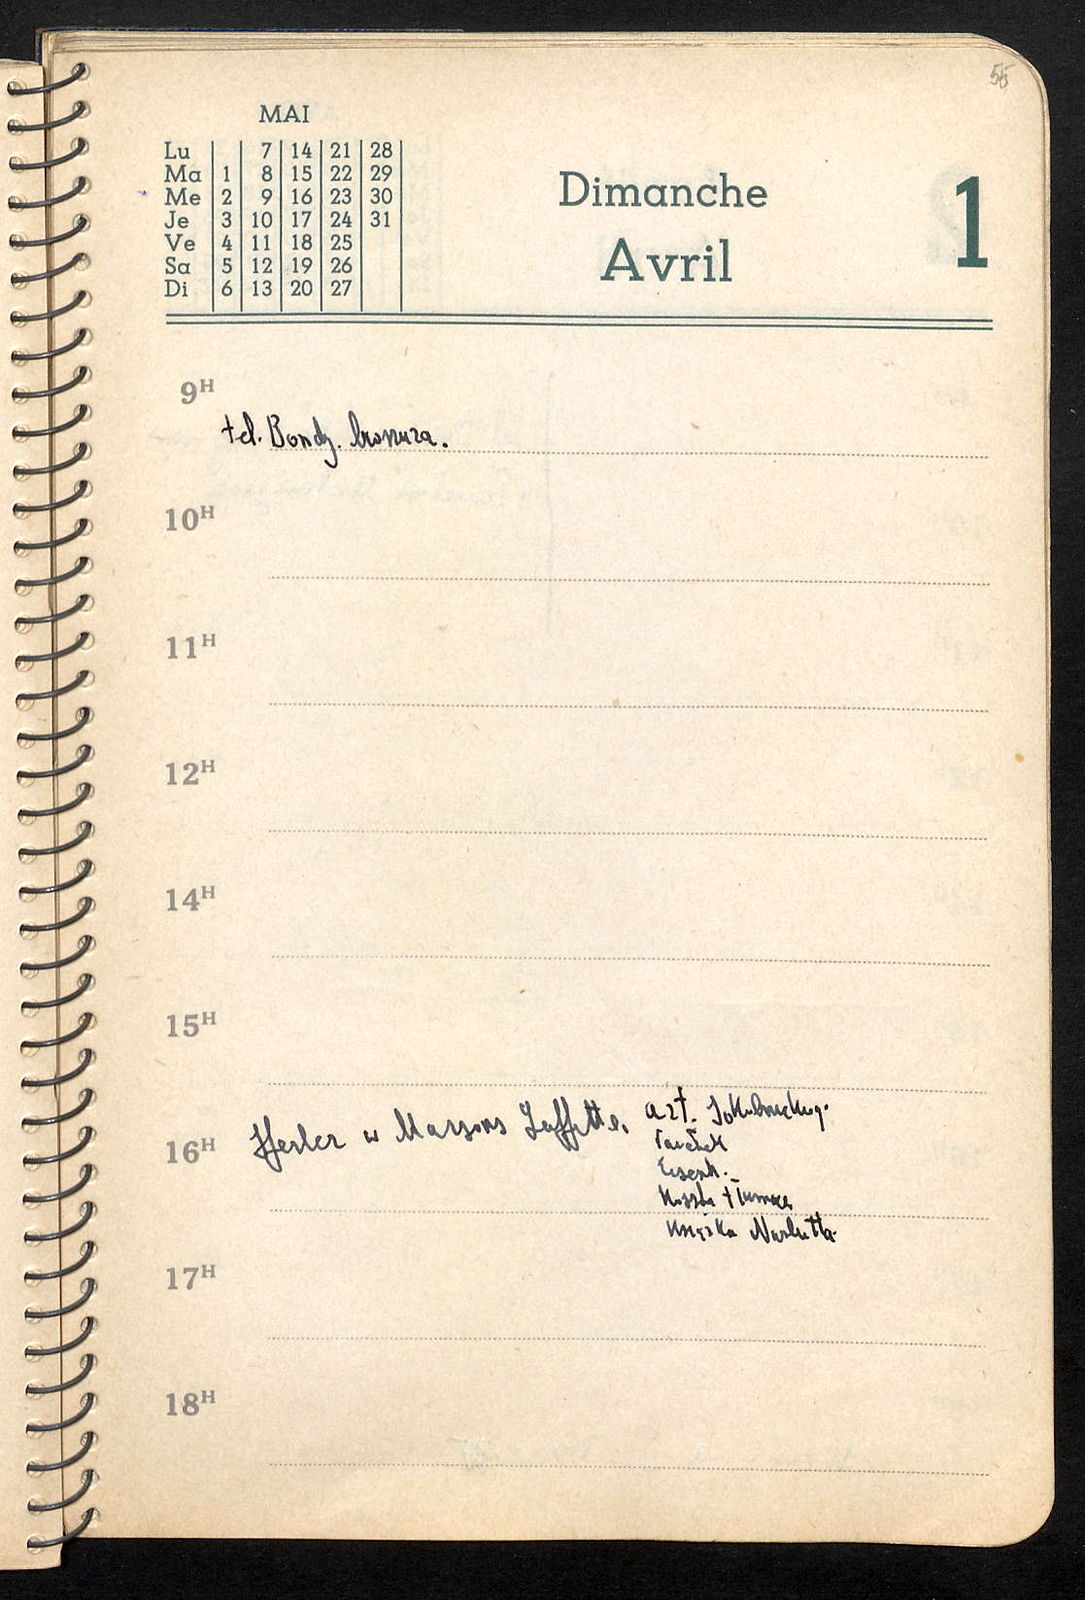 55
MAI
Lu 7 14 21 28
Ma 1 8 15 22 29
Me 2 9 16 23 30
Je 3 10 17 24 31
Ve 4 11 18 25
Sa 5 12 19 26
Di 6 13 20 27
Dimanche
Avril
1
9H
tel. Bondy. broszura.
10H
11H
12H
14H
15H
16H
Hesler w Maisons Laffitte.
art.
17H
18H